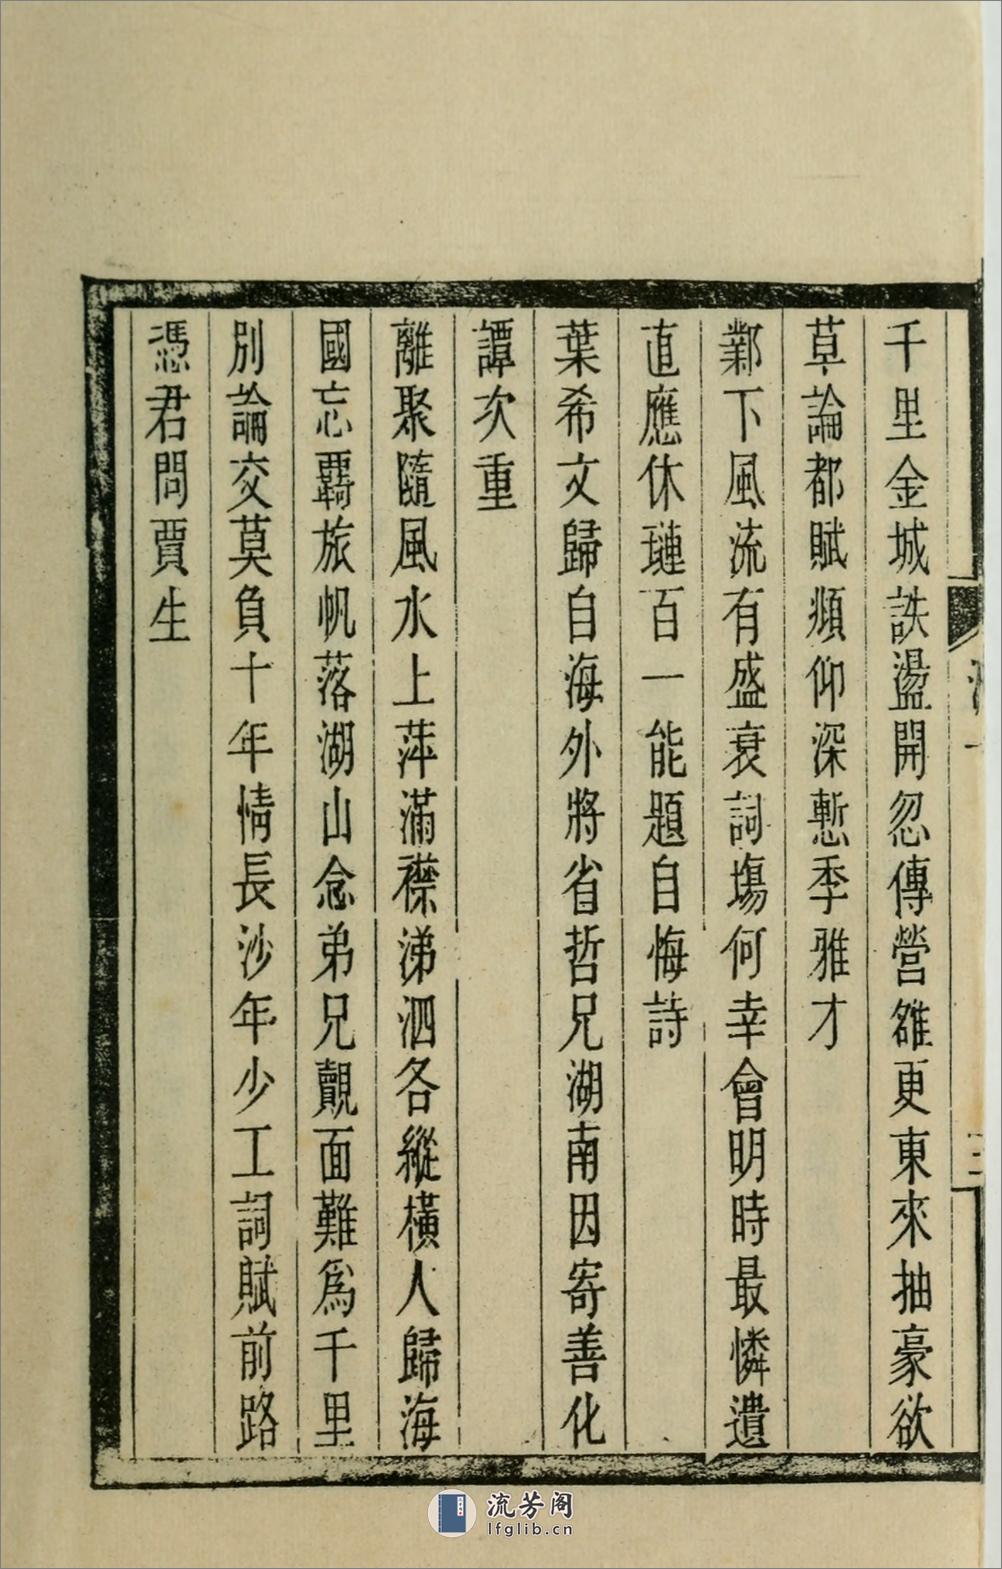 千里金城詄盪開忽傳營雒更東來抽豪欲
草論都賦頫仰深慙季雅才
鄴下風流有盛衰詞塲何幸會明時最憐遺
直應休璉百一能題自悔詩
葉希文歸自海外將省哲兄湖南因寄善化
譚次重
離聚隨風水上萍滿襟涕泗各縱橫人歸海
國忘羈旅帆落湖山念弟兄覿面難爲千里
別論交莫負十年情長沙年少工詞賦前路
憑君問賈生
流芳阁
lfglib.cn